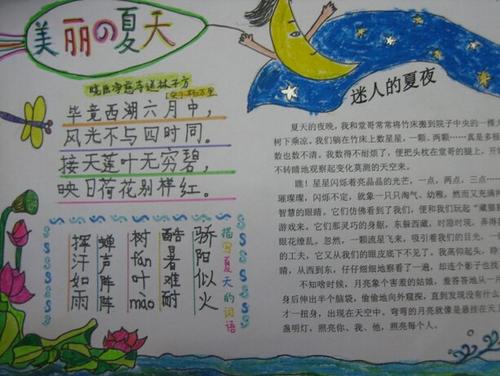 美丽の夏天
晓出净慈寺送林子方
毕竟西湖六月中，
风光不与四时同。
接天莲叶无穷碧，
映日荷花别样红。
描写夏天的词语
骄阳似火
酷暑难耐
树fān叶mào
蝉声阵阵
挥汗如雨
迷人的夏夜
夏天的夜晚，我和堂哥常常将竹床搬到院子中央的一棵大
树下乘凉，我们躺在竹床上数星星，一颗，两颗……真是多极
数也数不清。我数得不耐烦了，便把头枕在堂哥的腿上，开始
不转睛地观察起变化莫测的天空来。
瞧！星星闪烁着亮晶晶的光芒，一点，两点，三点……
璀璨璨，闪烁不定，就象一只只淘气、幼稚，然而又充满
智慧的眼睛。它们仿佛看到了我们，便和我们玩起“藏猫猫
游戏来。它们那灵巧的身躯，东躲西藏，时隐时现，弄得
眼花缭乱。忽然，一颗流星飞来，吸引着我们的目光，一
的工夫，它又从我们的眼皮底下不见了。我高仰起头，睁
睛，从西到东，仔仔细细地察看了一遍，却连个影子也找
不知啥时候，月亮象个害羞的姑娘，羞答答地从一片
身后伸出半个脑袋，偷偷地向外窥探，直到发现没有什么
才一扭身，出现在天空中。弯弯的月亮就像是悬挂在天上
盏明灯，照亮你、我、他，照亮每个人。